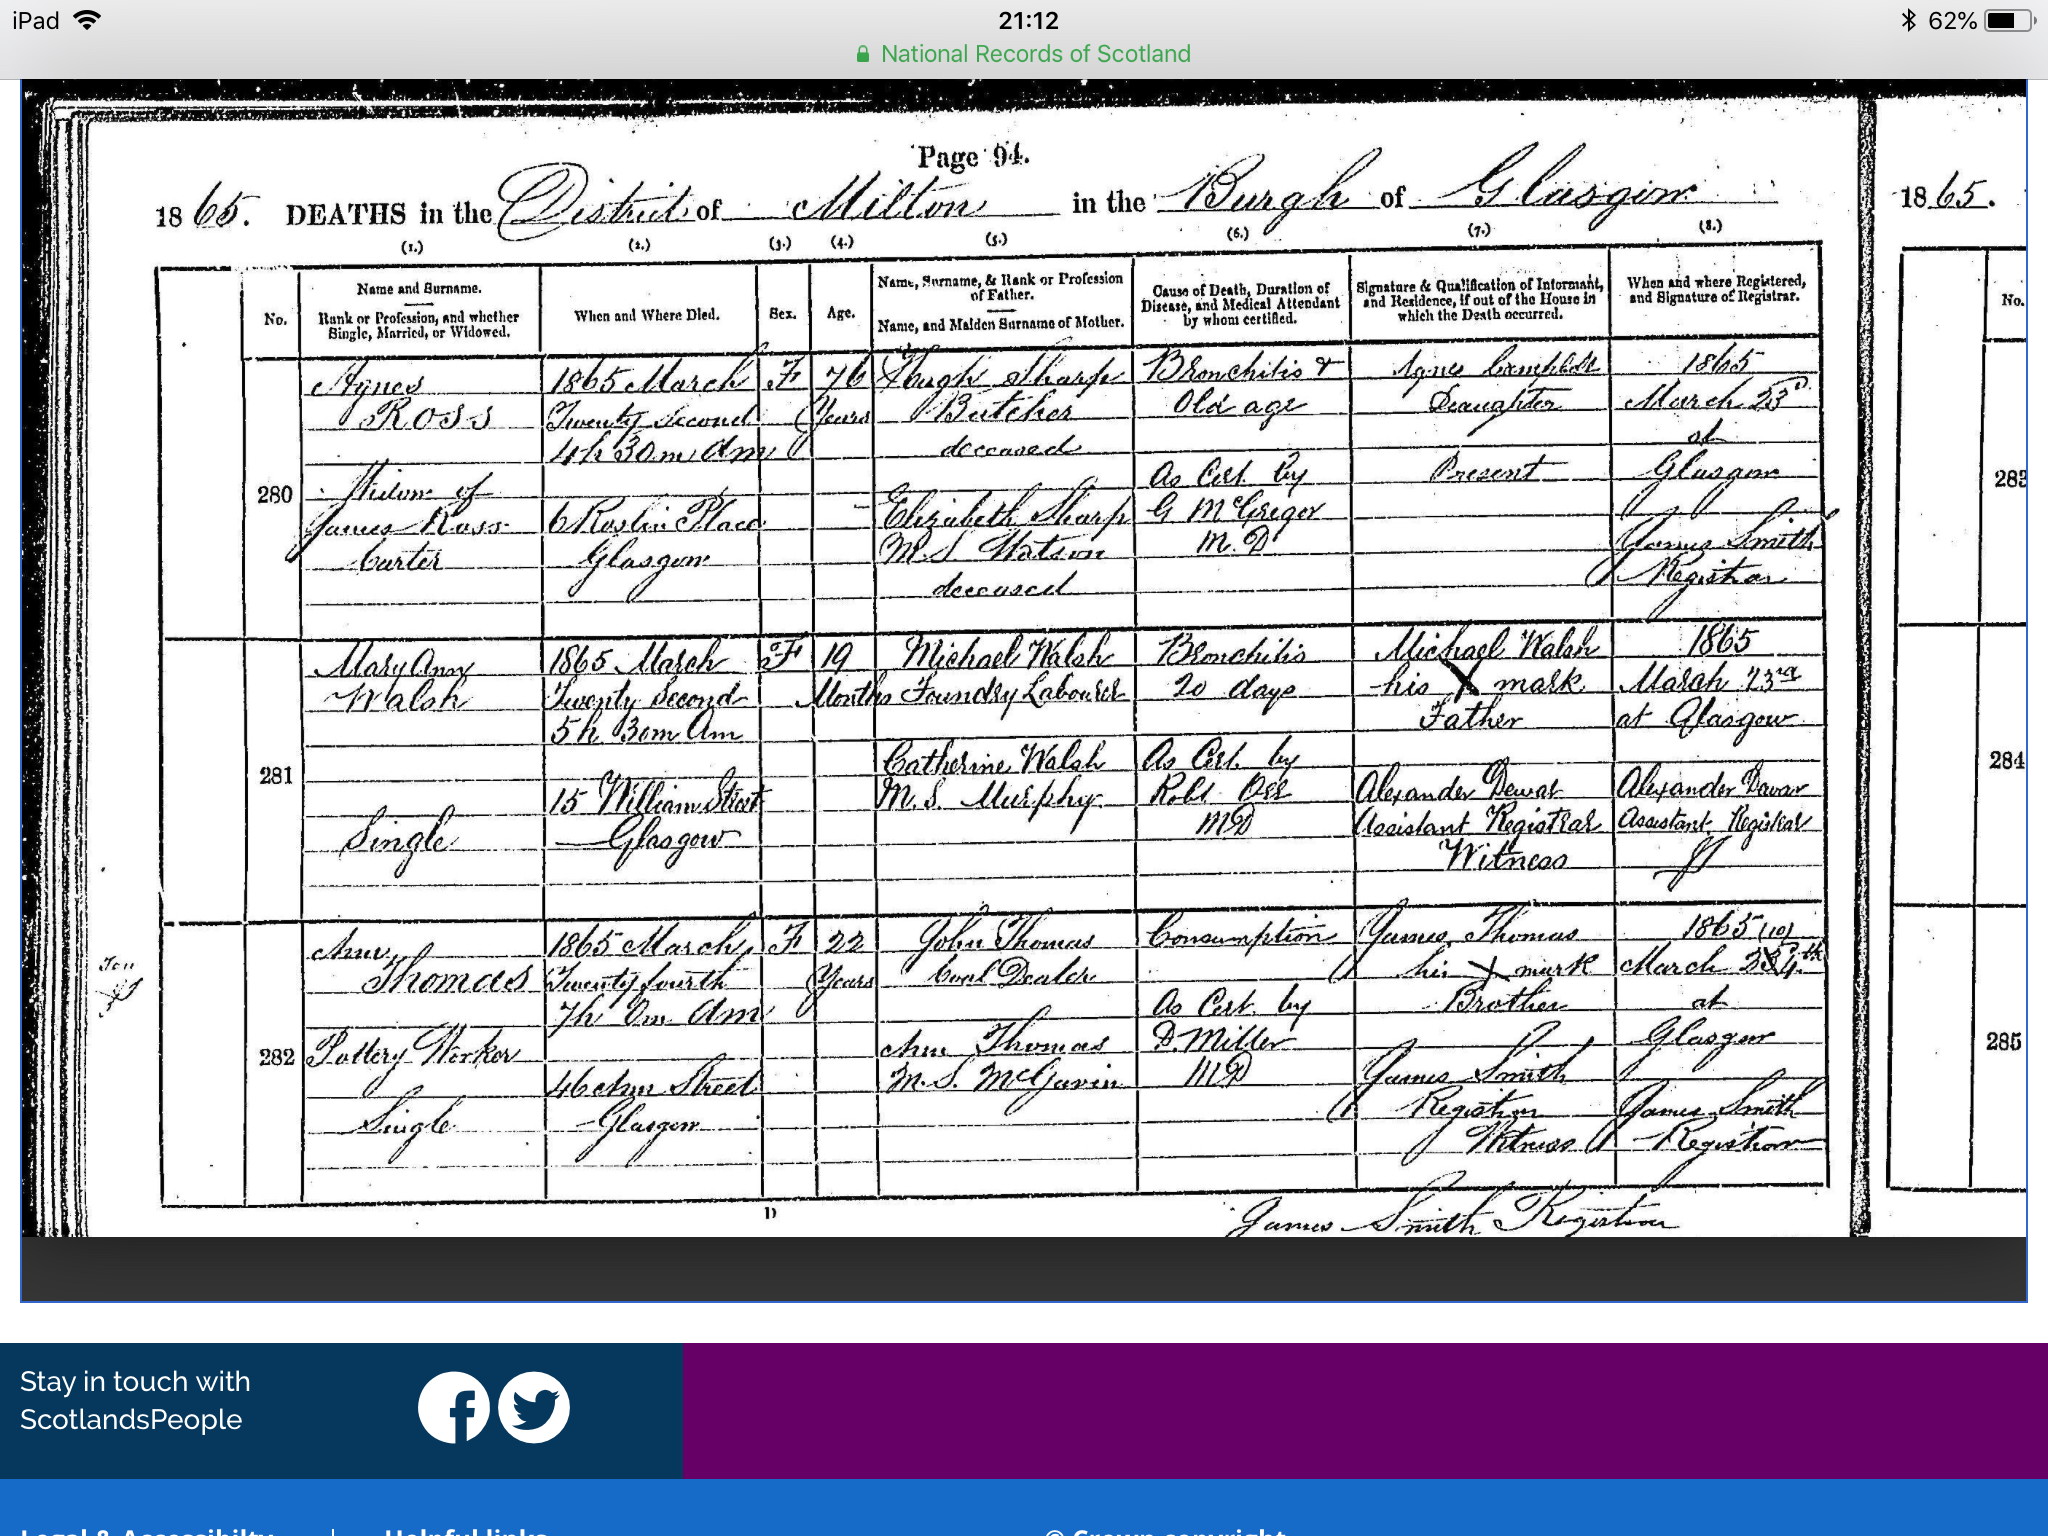 iPad
21:12
62%
National Records of Scotland
Page 94.
1865. DEATHS in the District of Milton in the Burgh of Glasgow
1865.
(1.) (2.) (3.) (4.) (5.) (6.) (7.) (8.)
No.
Name and Surname.
Rank or Profession, and whether
Single, Married, or Widowed.
When and Where Died.
Sex.
Age.
Name, Surname, & Rank or Profession
of Father.
Name, and Maiden Surname of Mother.
Cause of Death, Duration of
Disease, and Medical Attendant
by whom certified.
Signature & Qualification of Informant,
and Residence, if out of the House in
which the Death occurred.
When and where Registered,
and Signature of Registrar.
No.
280
Agnes
Ross
Widow of
James Ross
Carter
1865 March
Twenty second
4h 30m Am
6 Roslin Place
Glasgow
F
76
Years
Hugh Sharp
Butcher
deceased
Elizabeth Sharp
M.S. Watson
deceased
Bronchitis &
Old age
As Cert. by
G McGregor
M.D
Agnes Campbell
Daughter
Present
1865
March 23d
at
Glasgow
James Smith
Registrar
283
281
Mary Ann
Walsh
Single
1865 March
Twenty Second
5h 30m Am
15 William Street
Glasgow
F
19
Months
Michael Walsh
Foundry Labourer
Catherine Walsh
M.S. Murphy
Bronchitis
20 days
As Cert. by
Robt Orr
MD
Michael Walsh
his X mark
Father
Alexander Dewar
Assistant Registrar
Witness
1865
March 23rd
at Glasgow
Alexander Dewar
Assistant Registrar
284
282
Ann
Thomas
Pottery Worker
Single
1865 March
Twenty fourth
7h 0m Am
46 Ann Street
Glasgow
F
22
Years
John Thomas
Coal Dealer
Ann Thomas
M.S. McGavin
Consumption
As Cert by
D. Miller
MD
James Thomas
his X mark
Brother
James Smith
Registrar
Witness
1865 (10)
March 24th
at
Glasgow
James Smith
Registrar
285
D
James Smith Registrar
Stay in touch with
ScotlandsPeople
Legal & Accessibilty | Helpful links © Crown copyright